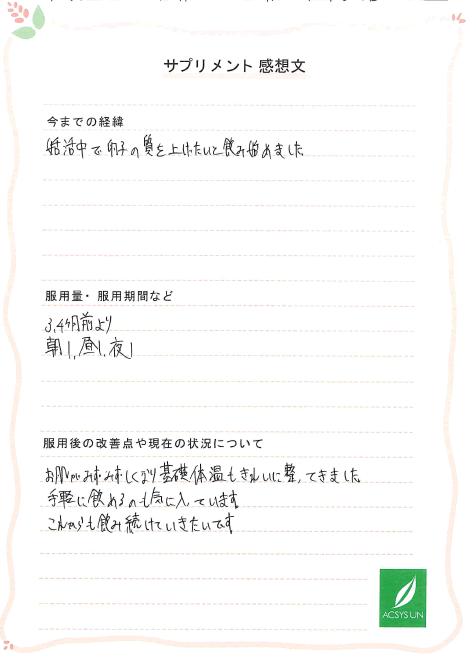 サプリメント 感想文
今までの経緯
妊活中で卵子の質を上げたいと飲み始めました
服用量・服用期間など
3,4ヶ月前より
朝1,昼1,夜1
服用後の改善点や現在の状況について
お肌がみずみずしくなり基礎体温もきれいに整ってきました
手軽に飲めるのも気に入っています
これからも飲み続けていきたいです
ACSYSUN